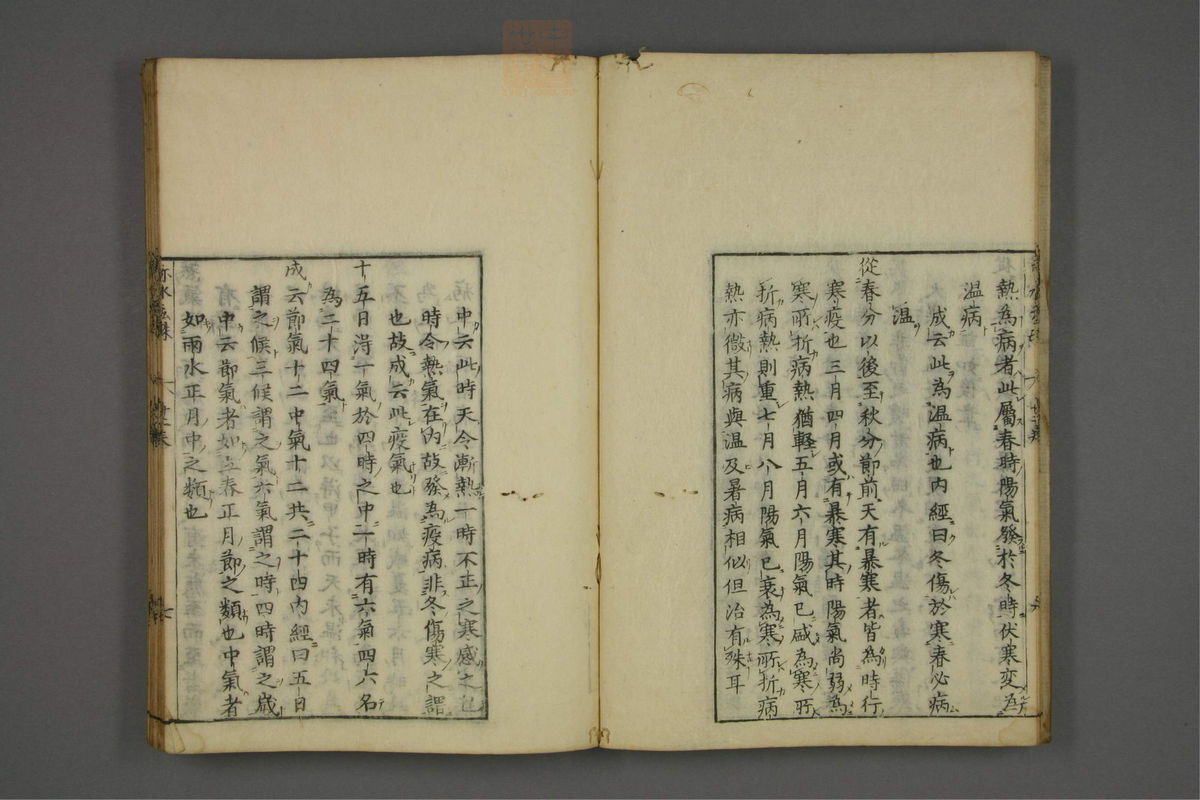 熱為病者此屬春時陽氣發於冬時伏寒変為
温病
成云此為温病也内經曰冬傷於寒春必病
温
從春分以後至秋分節前天有暴寒者皆為時行
寒疫也三月四月或有暴寒其時陽氣尚弱為
寒所折病熱猶軽五月六月陽氣已盛為寒所
折病熱則重七月八月陽氣已衰為寒所折病
熱亦微其病與温及暑病相似但治有殊耳
病中云此時天令漸熱一時不正之寒感之
時令熱氣在内故發為疫病非冬傷寒之謂
也故成云此疫氣也
十五日淂一氣於四時之中一時有六氣四六名
為二十四氣
成云節氣十二中氣十二共二十四内經曰五日
謂之候三候謂之氣六氣謂之時四時謂之歳
中云節氣者如立春正月節之類也中氣者
如雨水正月中之類也